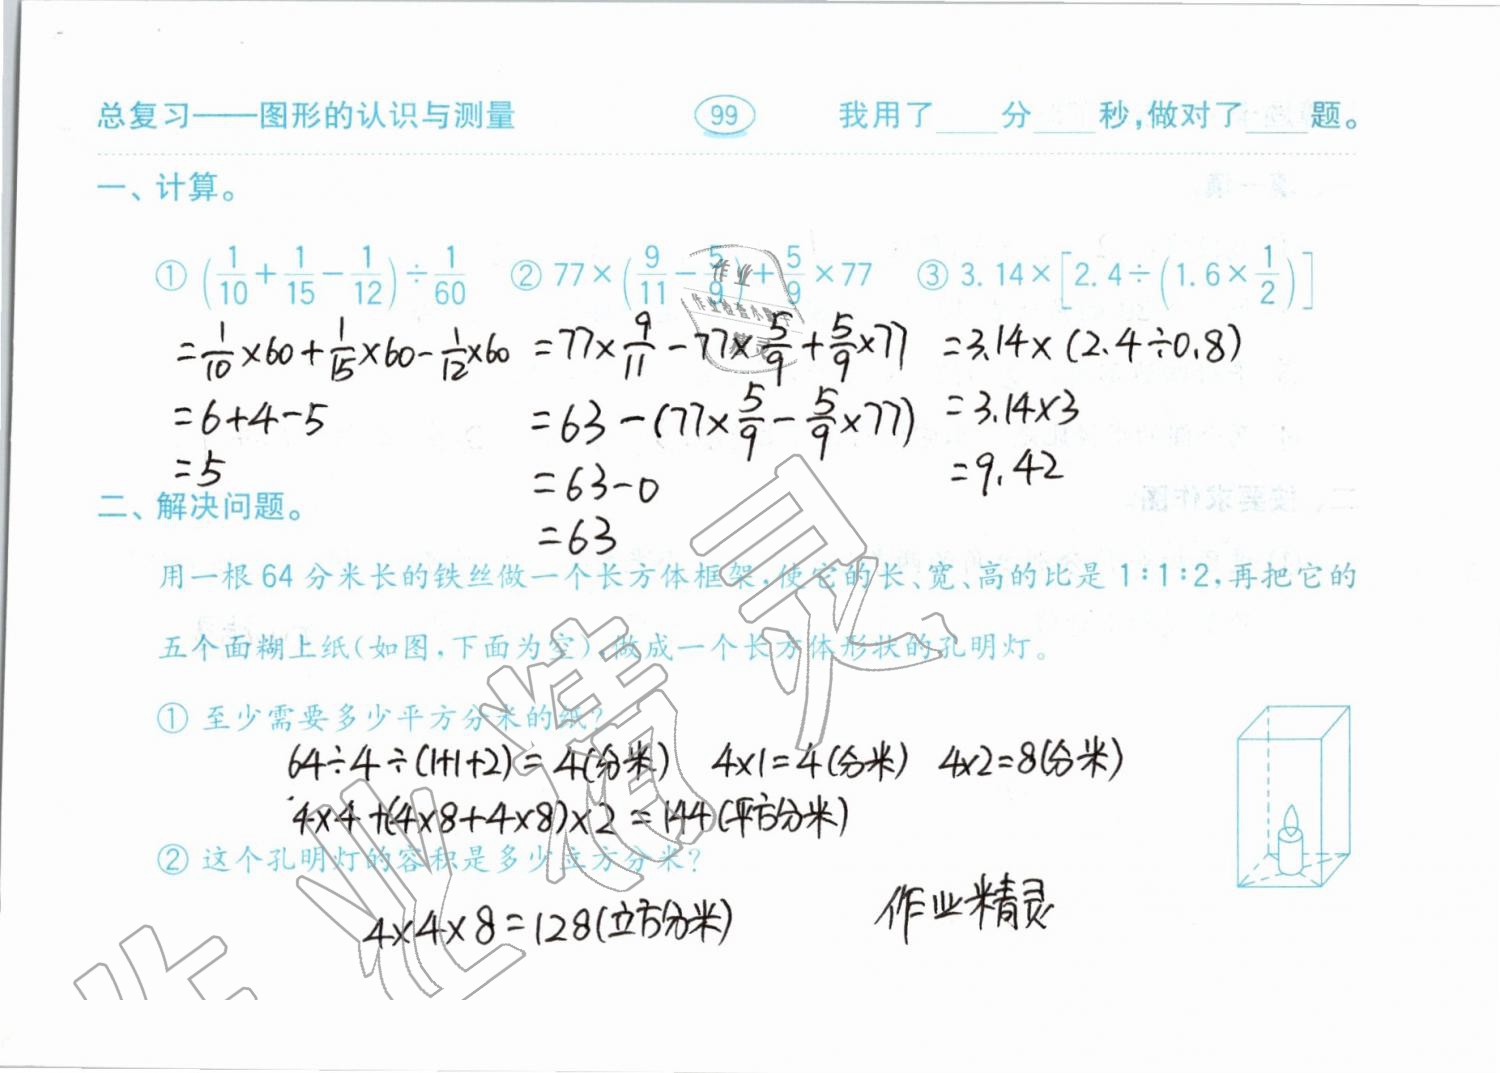 总复习——图形的认识与测量 99 我用了____分____秒,做对了____题。
一、计算。
① (1/10+1/15-1/12)÷1/60 ② 77×(9/11-5/9)+5/9×77 ③ 3.14×[2.4÷(1.6×1/2)]
=1/10×60+1/15×60-1/12×60 =77×9/11-77×5/9+5/9×77 =3.14×(2.4÷0.8)
=6+4-5 =63-(77×5/9-5/9×77) =3.14×3
=5 =63-0 =9.42
=63
二、解决问题。
用一根64分米长的铁丝做一个长方体框架,使它的长、宽、高的比是1:1:2,再把它的
五个面糊上纸(如图,下面为空),做成一个长方体形状的孔明灯。
① 至少需要多少平方分米的纸?
64÷4÷(1+1+2)=4(分米) 4×1=4(分米) 4×2=8(分米)
4×4+(4×8+4×8)×2=144(平方分米)
② 这个孔明灯的容积是多少立方分米?
4×4×8=128(立方分米) 作业精灵
作业
作业检查小助手
精灵
作业精灵